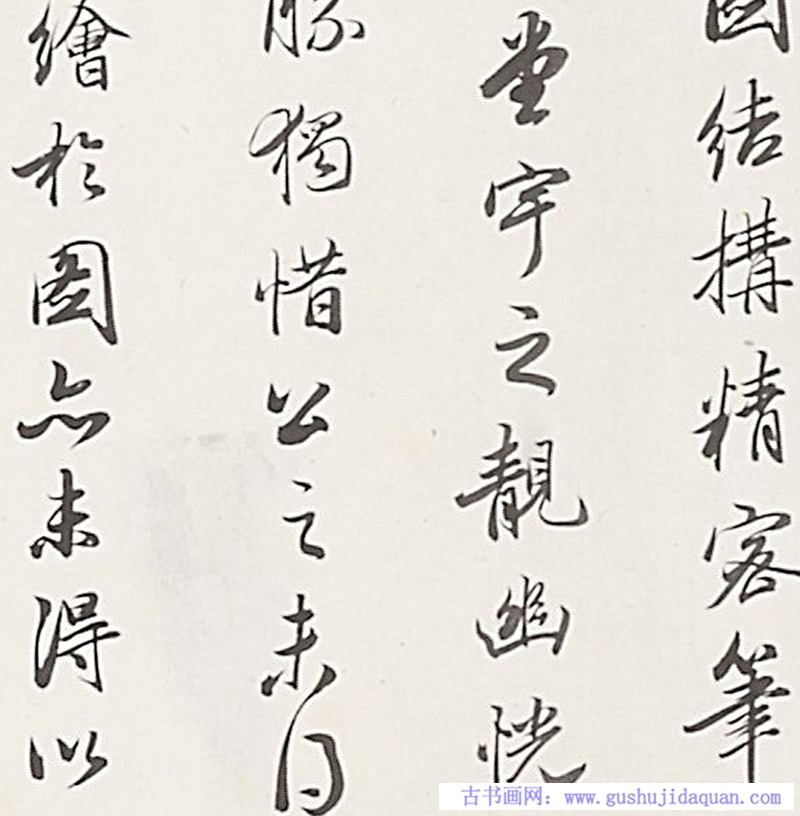 圖結構精密筆
堂宇之靚幽恍
勝獨惜公之未得
繪於圖亦未得以
古书画网：www.gushujidaquan.com